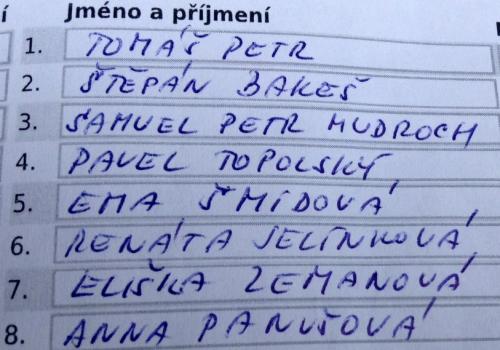 Jméno a příjmení
1. TOMÁŠ PETR
2. ŠTĚPÁN BAKEŠ
3. SAMUEL PETR MUDROCH
4. PAVEL TOPOLSKÝ
5. EMA ŠMÍDOVÁ
6. RENÁTA JELÍNKOVÁ
7. ELIŠKA ZEMANOVÁ
8. ANNA PANUŠOVÁ